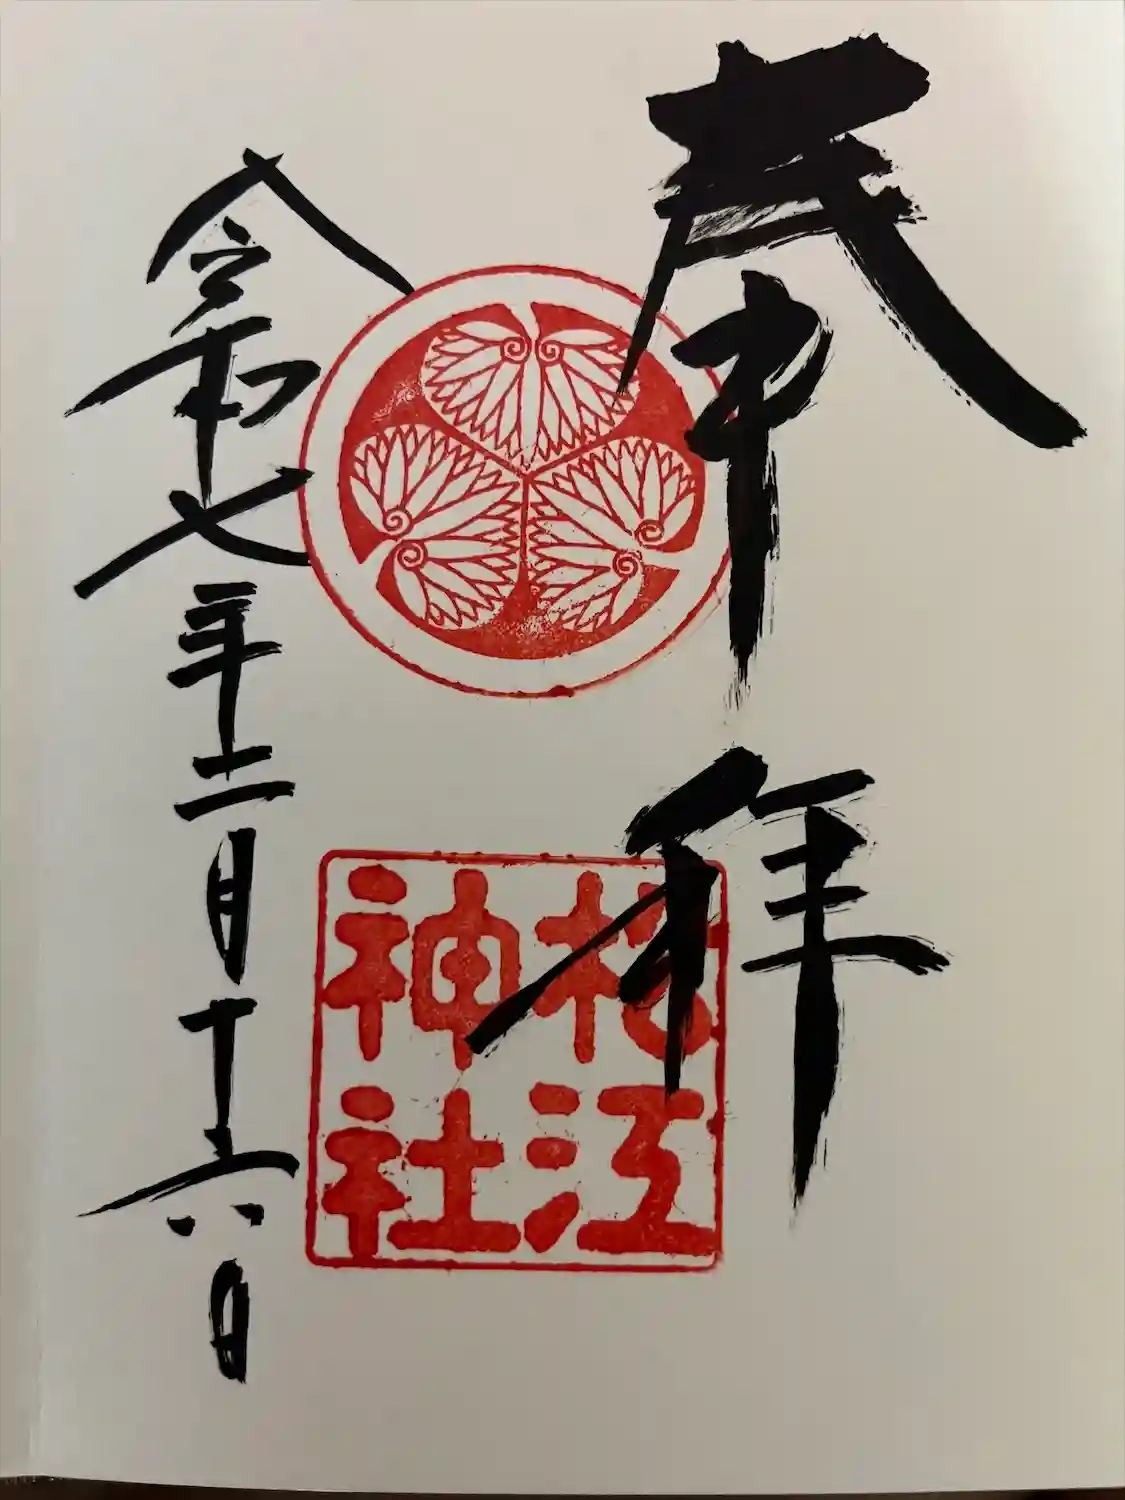 奉拝
松江
神社
令和七年二月十六日